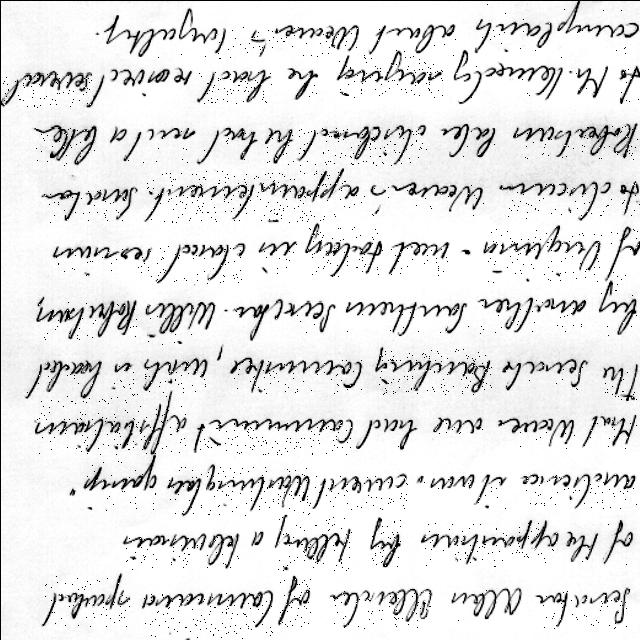 Senator Allen Ellender of Louisiana sparked
of the opposition by telling a television
audience it was "current Washington gossip"
that Weaver once had Communist affiliations
The Senate Banking Committee, which is headed
by another Southern Senator - Willis Robertson,
of Virginia - met today in closed session
to discuss Weaver's appointment. Senator
Robertson later disclosed he had sent a letter
to Mr. Kennedy saying he had received several
complaints about Weaver's loyalty.